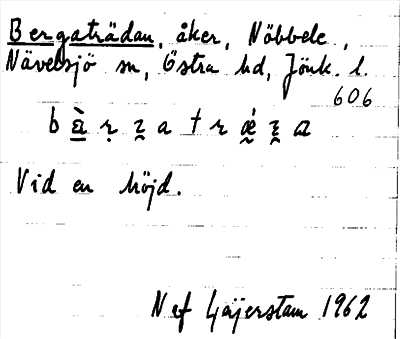 Bergaträdan, åker, Nöbbele,
Nävelsjö sn, Östra hd, Jönk. l.
606
Vid en höjd.
Nef Gejerstam 1962